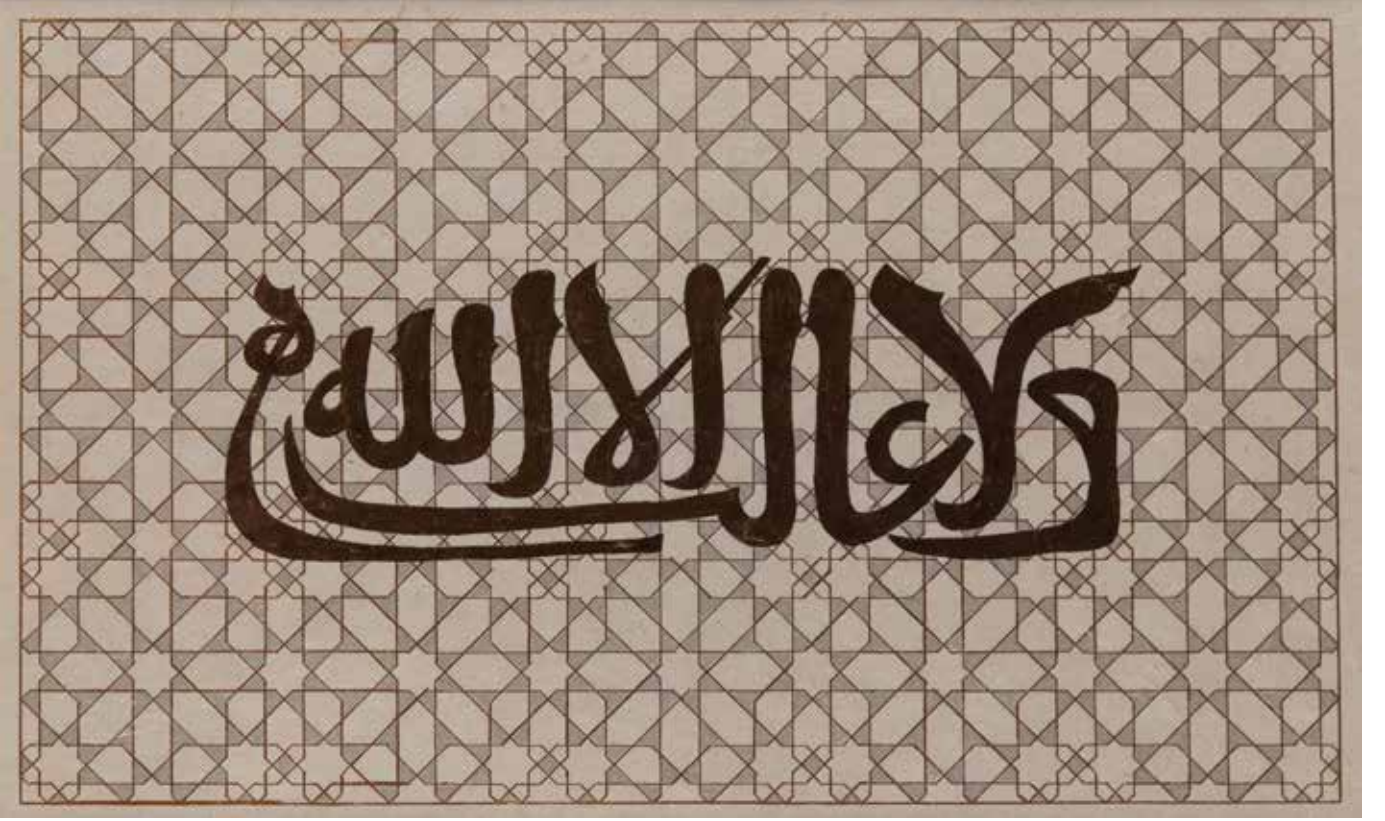 ولا غالب الا الله